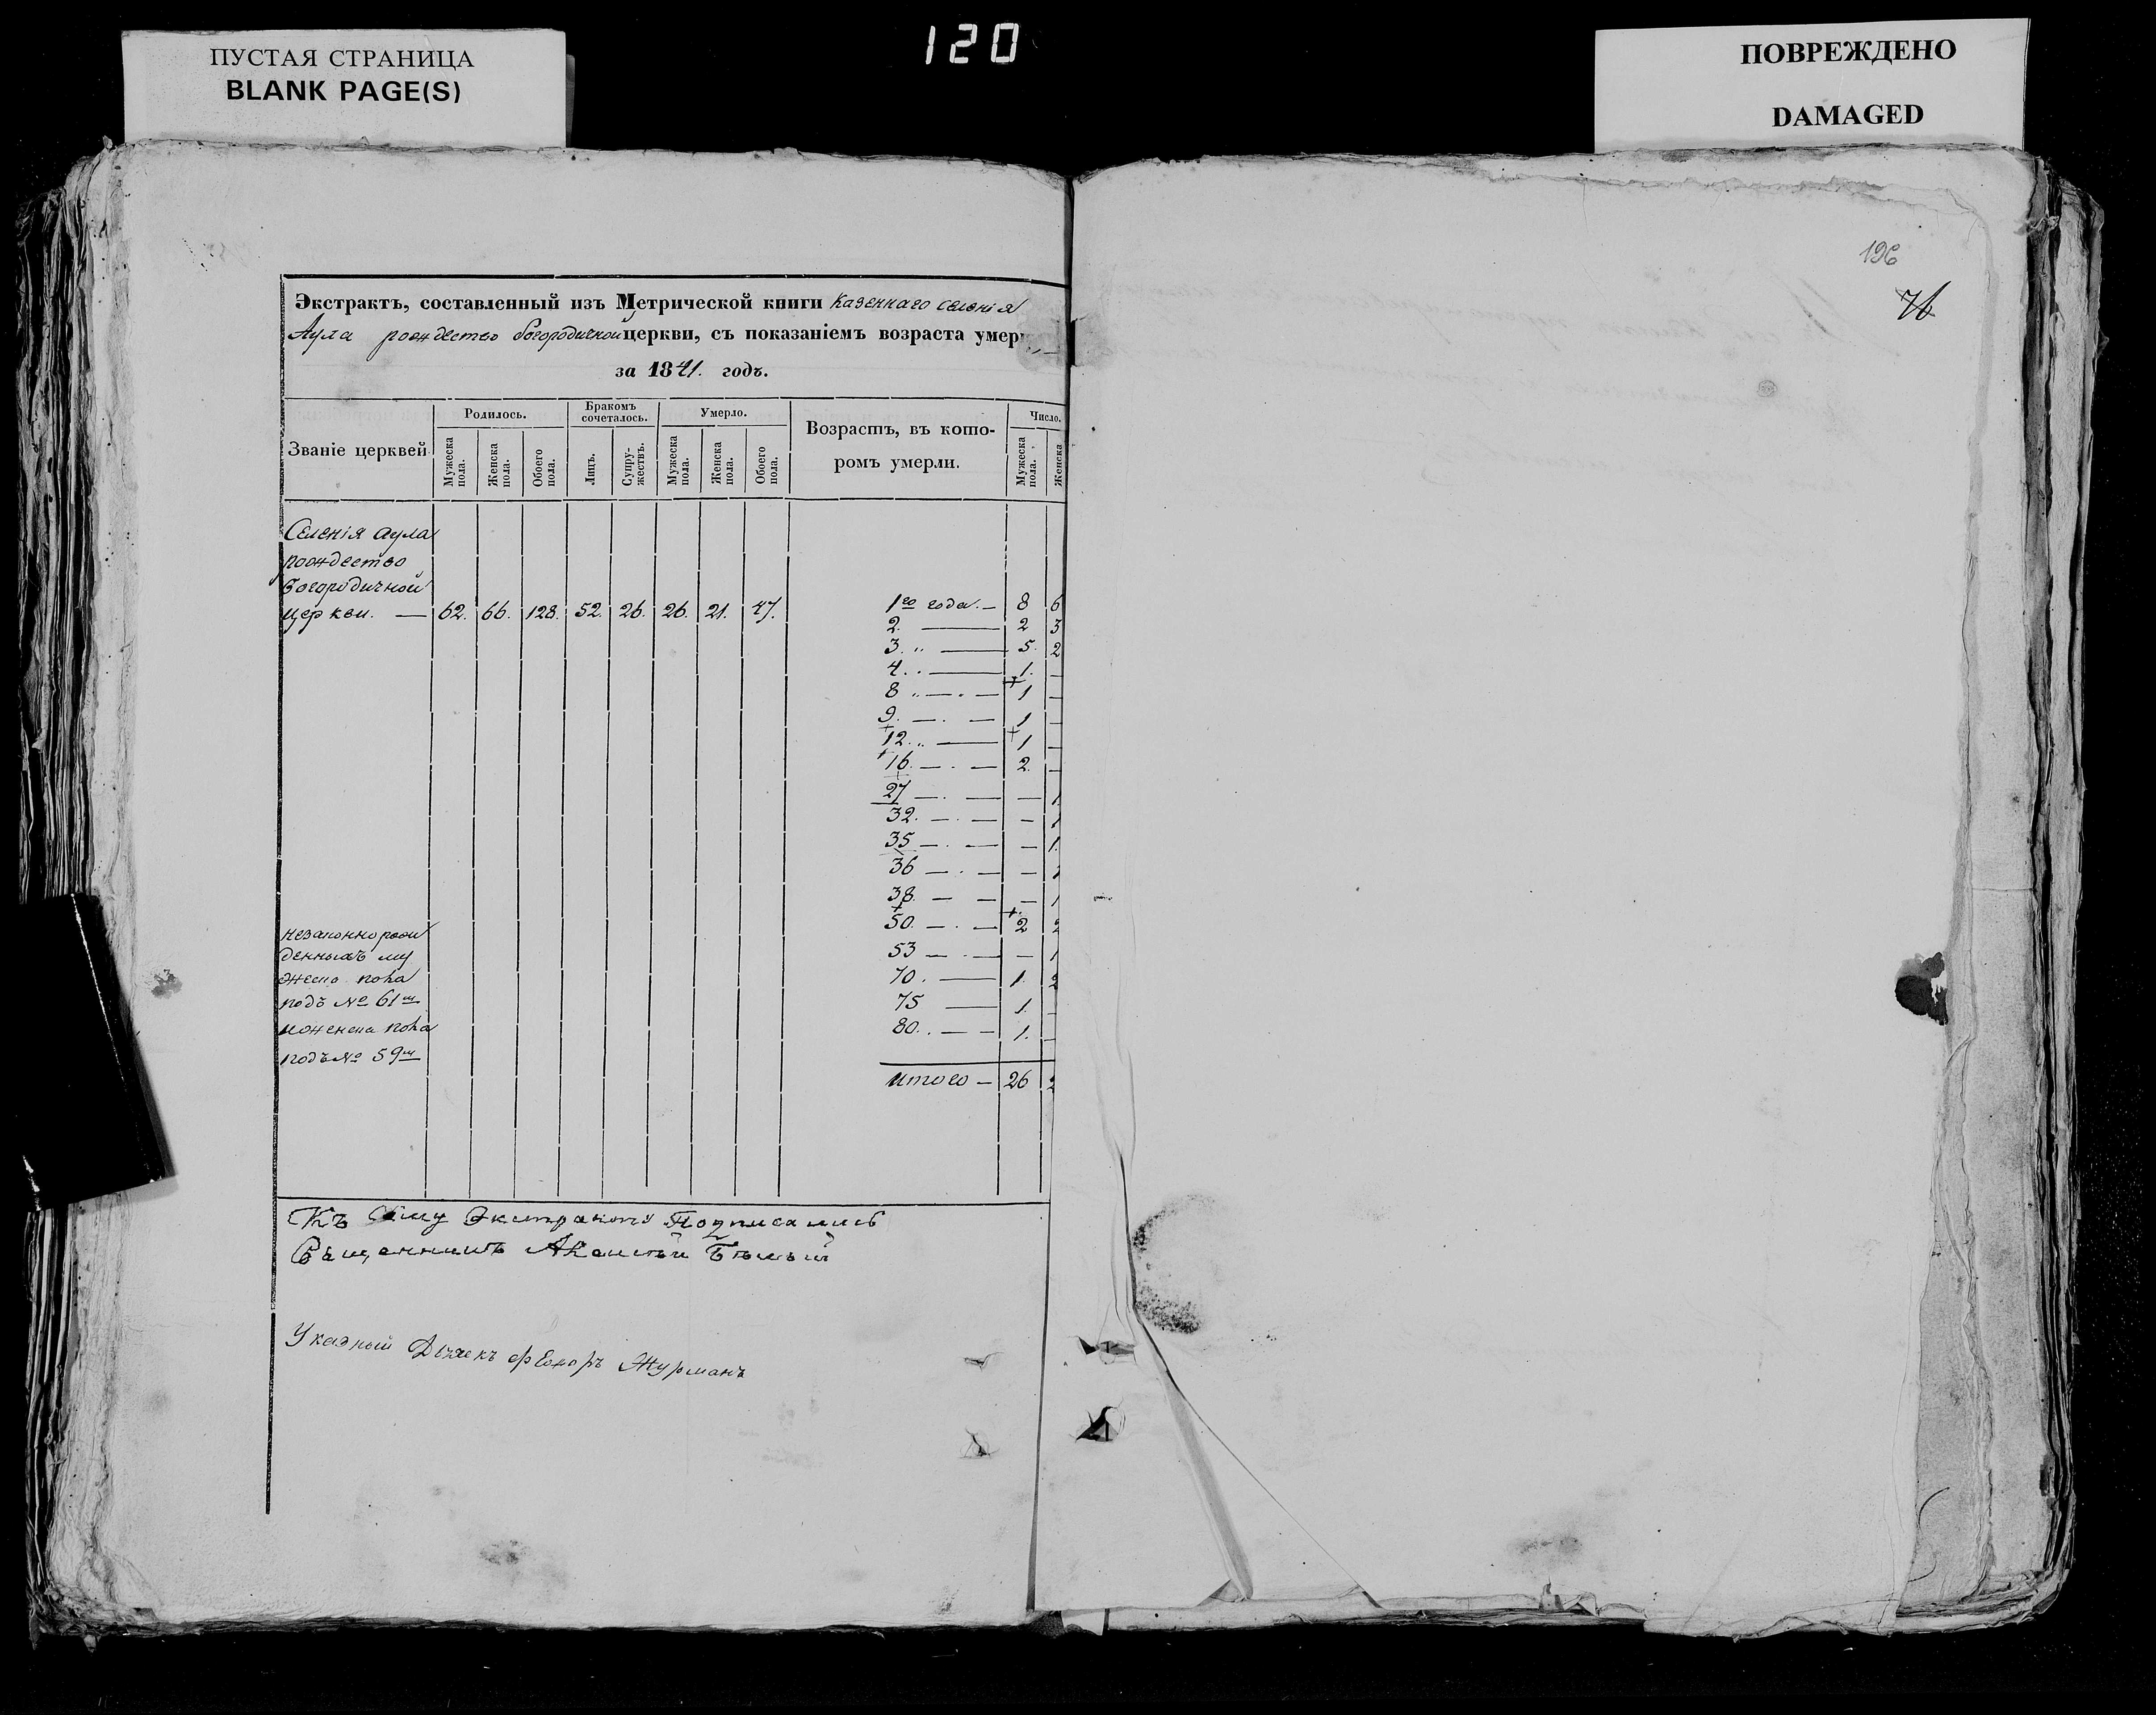 ПУСТАЯ СТРАНИЦА
BLANK PAGE(S)
120
ПОВРЕЖДЕНО
DAMAGED
196
76
Экстрактъ, составленный изъ Метрической книги Казеннаго Селенія
Аула рождество богородичной церкви, съ показаніемъ возраста умер
за 1841. годъ.
Званіе церквей
Родилось.
Бракомъ сочеталось.
Умерло.
Возрастъ, въ кото-
ромъ умерли.
Число.
Мужеска пола.
Женска пола.
Обоего пола.
Лицъ.
Супру-жествъ.
Мужеска пола.
Женска пола.
Обоего пола.
Мужеска пола.
Женска
Селенія аула
рождество
Богородичной
церкви. — 62. 66. 128. 52. 26. 26. 21. 47.
1го года. — 8 6
2. — 2 3
3. „ — 5. 2
4. . — 1. —
8 „ — . — 1 —
9. — . — 1 —
12. „ — 1 —
16. — . — 2. —
27 — . — — 1.
32. — . — — 1
35 — . — — 1.
36 — . — — 1
38. — — — 1
50. — . — 2 2
53 — . — — 1
70. — 1. 2
75 — 1. —
80. . — — 1. —
итого — 26 2
незаконнорож
денныхъ му
жеско пола
подъ № 61м
и женска пола
подъ № 59м
Къ сему Экстракту Подписались
Священникъ Алексѣй Бѣлый
Указный Дьячекъ Феодоръ Журманъ